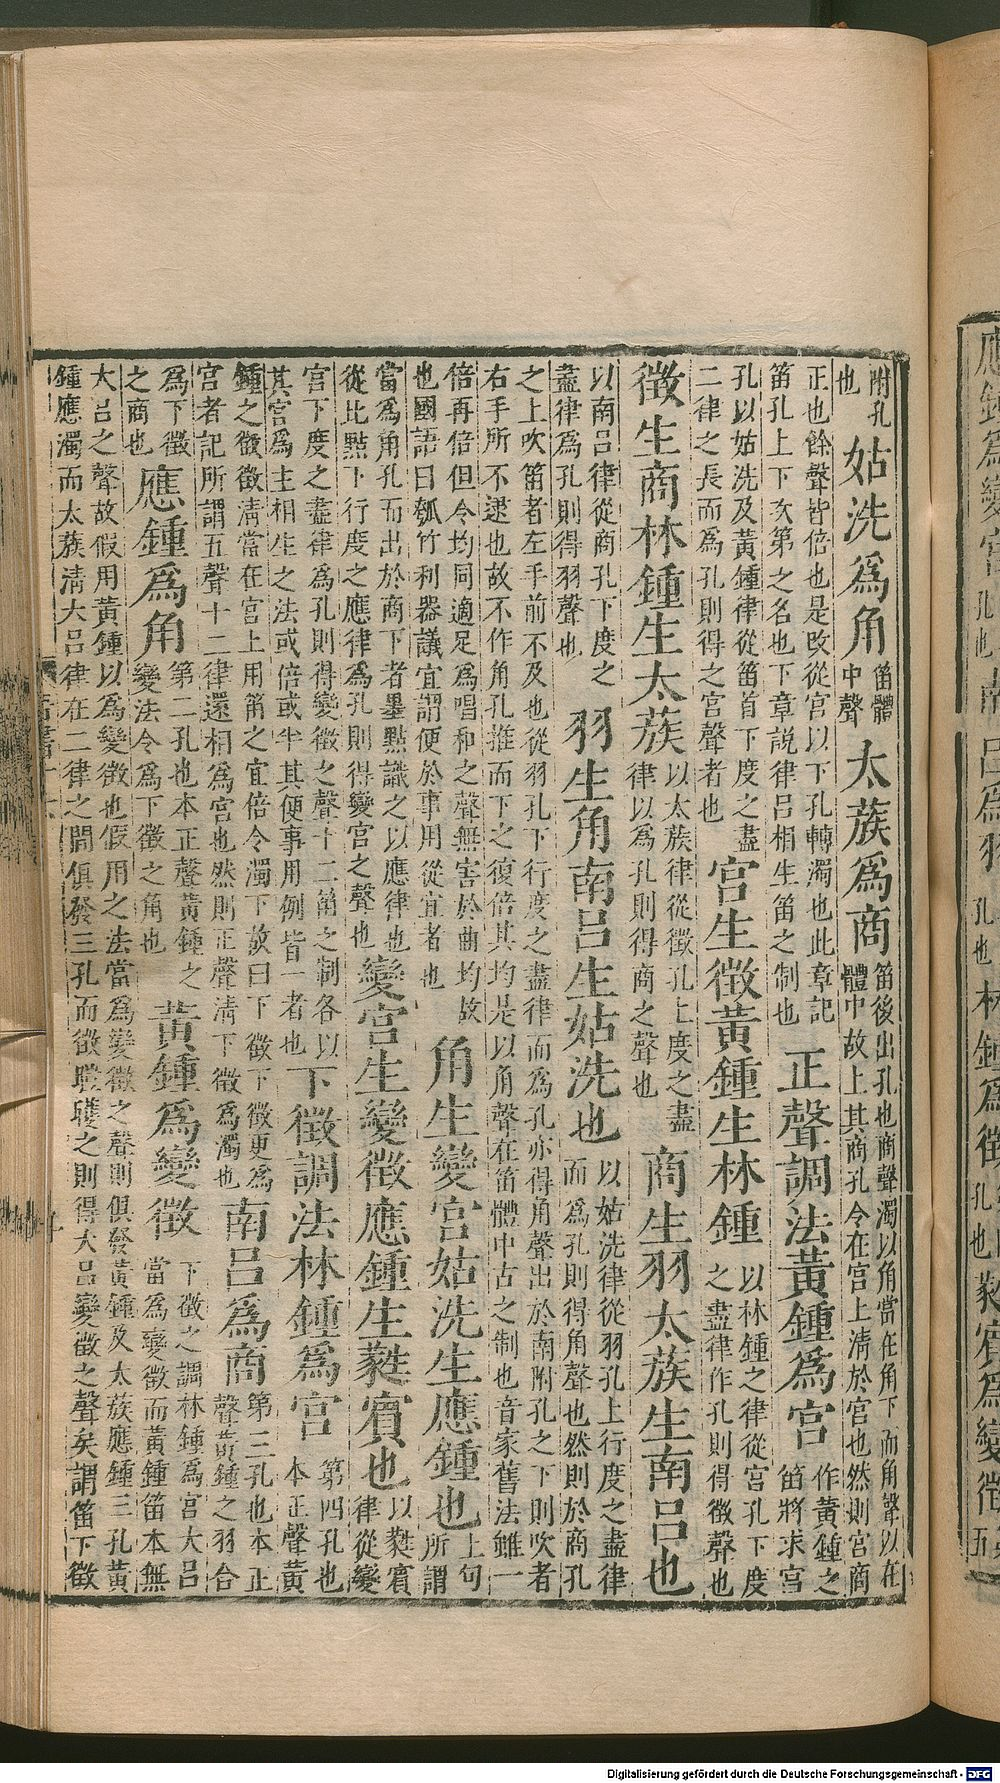 應鍾爲變宮孔也南吕爲羽孔也林鍾爲徵孔也蕤賓爲變徵
附孔
也
姑洗爲角
笛體
中聲
太蔟爲商
笛後出孔也商聲濁以角當在角下而角聲以在
體中故上其商孔令在宮上清於宮也然則宮商
正也餘聲皆倍也是攺從宮以下孔轉濁也此章記
笛孔上下次第之名也下章說律吕相生笛之制也
正聲調法黃鍾爲宮
作黃鍾之
笛將求宮
孔以姑洗及黃鍾律從笛首下度之盡
二律之長而爲孔則得之宮聲者也
宮生徵黃鍾生林鍾
以林鍾之律從宮孔下度
之盡律作孔則得徵聲也
徵生商林鍾生太蔟
以太蔟律從徵孔上度之盡
律以爲孔則得商之聲也
商生羽太蔟生南吕也
以南吕律從商孔下度之
盡律爲孔則得羽聲也
羽生角南吕生姑洗也
以姑洗律從羽孔上行度之盡律
而爲孔則得角聲也然則於商孔
之上吹笛者左手前不及也從羽孔下行度之盡律而爲孔亦得角聲出於南附孔之下則吹者
右手所不逮也故不作角孔推而下之復倍其均是以角聲在笛體中古之制也音家舊法雖一
倍再倍但令均同適足爲唱和之聲無害於曲均故
也國語曰瓠竹利器議宜謂便於事用從宜者也
角生變宮姑洗生應鍾也
上句
所謂
當爲角孔而出於商下者墨點識之以應律也
從此點下行度之應律爲孔則得變宮之聲也
變宮生變徵應鍾生蕤賓也
以蕤賓
律從變
宮下度之盡律爲孔則得變徵之聲十二笛之制各以
其宮爲主相生之法或倍或半其便事用例皆一者也
下徵調法林鍾爲宮
第四孔也
本正聲黃
鍾之徵徵清當在宮上用笛之宜倍令濁下故曰下徵下徵更爲
宮者記所謂五聲十二律還相爲宮也然則正聲清下徵爲濁也
南吕爲商
第三孔也本正
聲黃鍾之羽合
爲下徵
之商也
應鍾爲角
第二孔也本正聲黃鍾之
變法令爲下徵之角也
黃鍾爲變徵
下徵之調林鍾爲宮大吕
當爲變徵而黃鍾笛本無
大吕之聲故假用黃鍾以爲變徵也假用之法當爲變徵之聲則俱發黃鍾及太蔟應鍾三孔黃
鍾應濁而太蔟清大吕律在二律之間俱發三孔而徵之則得大吕變徵之聲矣謂笛下徵
Digitalisierung gefördert durch die Deutsche Forschungsgemeinschaft - DFG